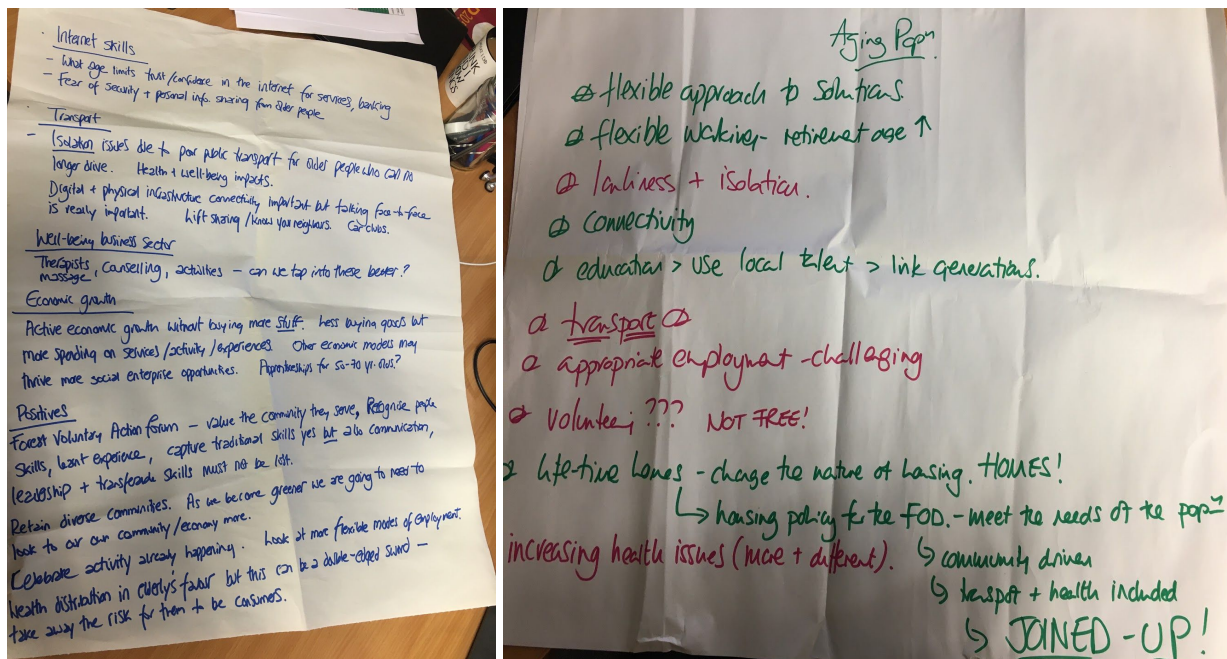 Internet skills
- What age limits trust/confidence in the internet for services, banking
- Fear of security + personal info. sharing from older people
Transport
- Isolation issues due to poor public transport for older people who can no
longer drive. Health + well-being impacts.
Digital + physical infrastructure connectivity important but talking face-to-face
is really important. Lift sharing/know your neighbours. Car clubs.
Well-being business sector
Therapists, counselling, activities - can we tap into these better?
massage
Economic growth
Active economic growth without buying more stuff. Less buying goods but
more spending on services/activity/experiences. Other economic models may
thrive more social enterprise opportunities. Apprenticeships for 50-70 yr. olds?
Positives
Forest Voluntary Action Forum - value the community they serve, Recognise people
skills, learnt experience, capture traditional skills yes but also communication,
leadership + transferable skills must not be lost.
Retain diverse communities. As we become greener we are going to need to
look to our own community/economy more.
Celebrate activity already happening. Look at more flexible modes of employment.
Wealth distribution in elderly's favour but this can be a double-edged sword -
take away the risk for them to be consumers.
Aging Popn.
flexible approach to solutions.
flexible working - retirement age ↑
lonliness + isolation.
connectivity
education > use local talent > link generations.
transport
appropriate employment - challenging
volunteer; ??? NOT FREE!
life-time homes - change the nature of housing. HOMES!
↳ housing policy for the FOD. - meet the needs of the popn
increasing health issues (more + different). ↳ community driven
↳ transport + health included
↳ JOINED-UP!